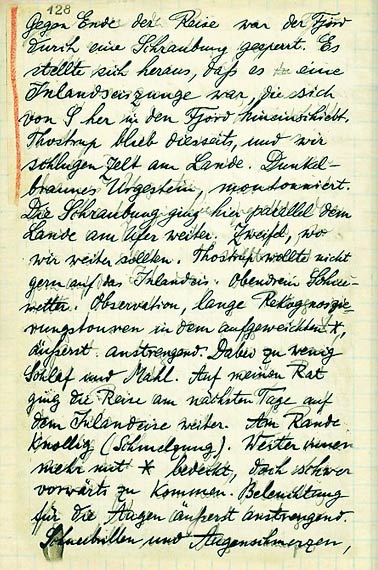 128
Gegen Ende der Reise war der Fjord
durch eine Schraubung gesperrt. Es
stellte sich heraus, daß es eine
Inlandseiszunge war, die sich
von S her in den Fjord hineinschiebt.
Thostrup blieb diesseits, und wir
schlugen Zelt am Lande. Dunkel-
braunes Urgestein, montonniert.
Die Schraubung ging hier parallel dem
Lande am Ufer weiter. Zweifel, wo
wir weiter sollten. Thostrup wollte nicht
gern auf das Inlandeis. Obendrein Schnee-
wetter. Observation, lange Rekognoszie-
rungstouren in dem aufgeweichten *,
äußerst anstrengend. Dabei zu wenig
Schlaf und Mahl. Auf meinen Rat
ging die Reise am nächsten Tage auf
dem Inlandeise weiter. Am Rande
knollig (Schmelzung). Weiter innen
mehr mit * bedeckt, doch schwer
vorwärts zu kommen. Beleuchtung
für die Augen äußerst anstrengend.
Schneebrillen und Augenschmerzen,